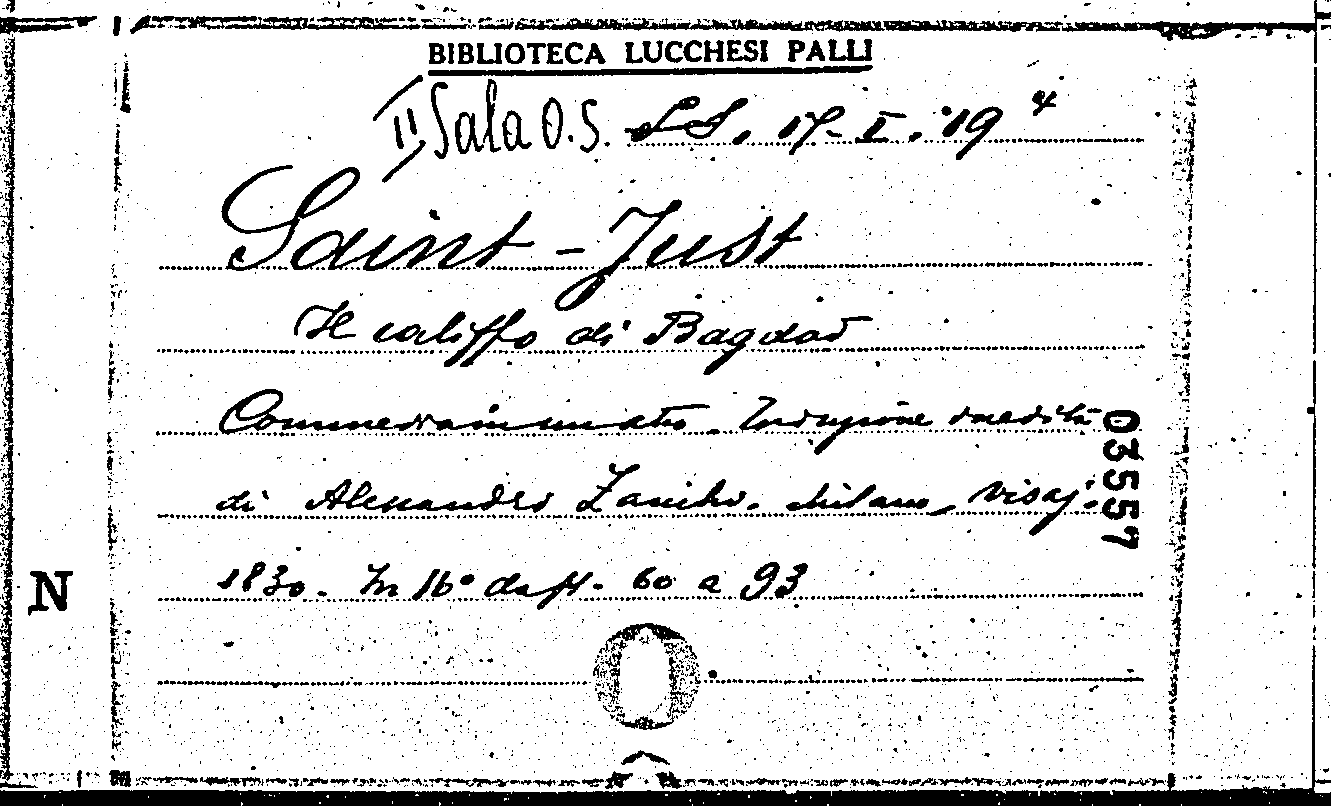 BIBLIOTECA LUCCHESI PALLI
II Sala O.S. SS. 17-I. 19 4
Saint-Just
Il califfo di Bagdad
Commedia in un atto. Traduzione inedita
di Alessandro Zanchi. Milano, Visaj.
1830. In 16° da f. 60 a 93
03557
N